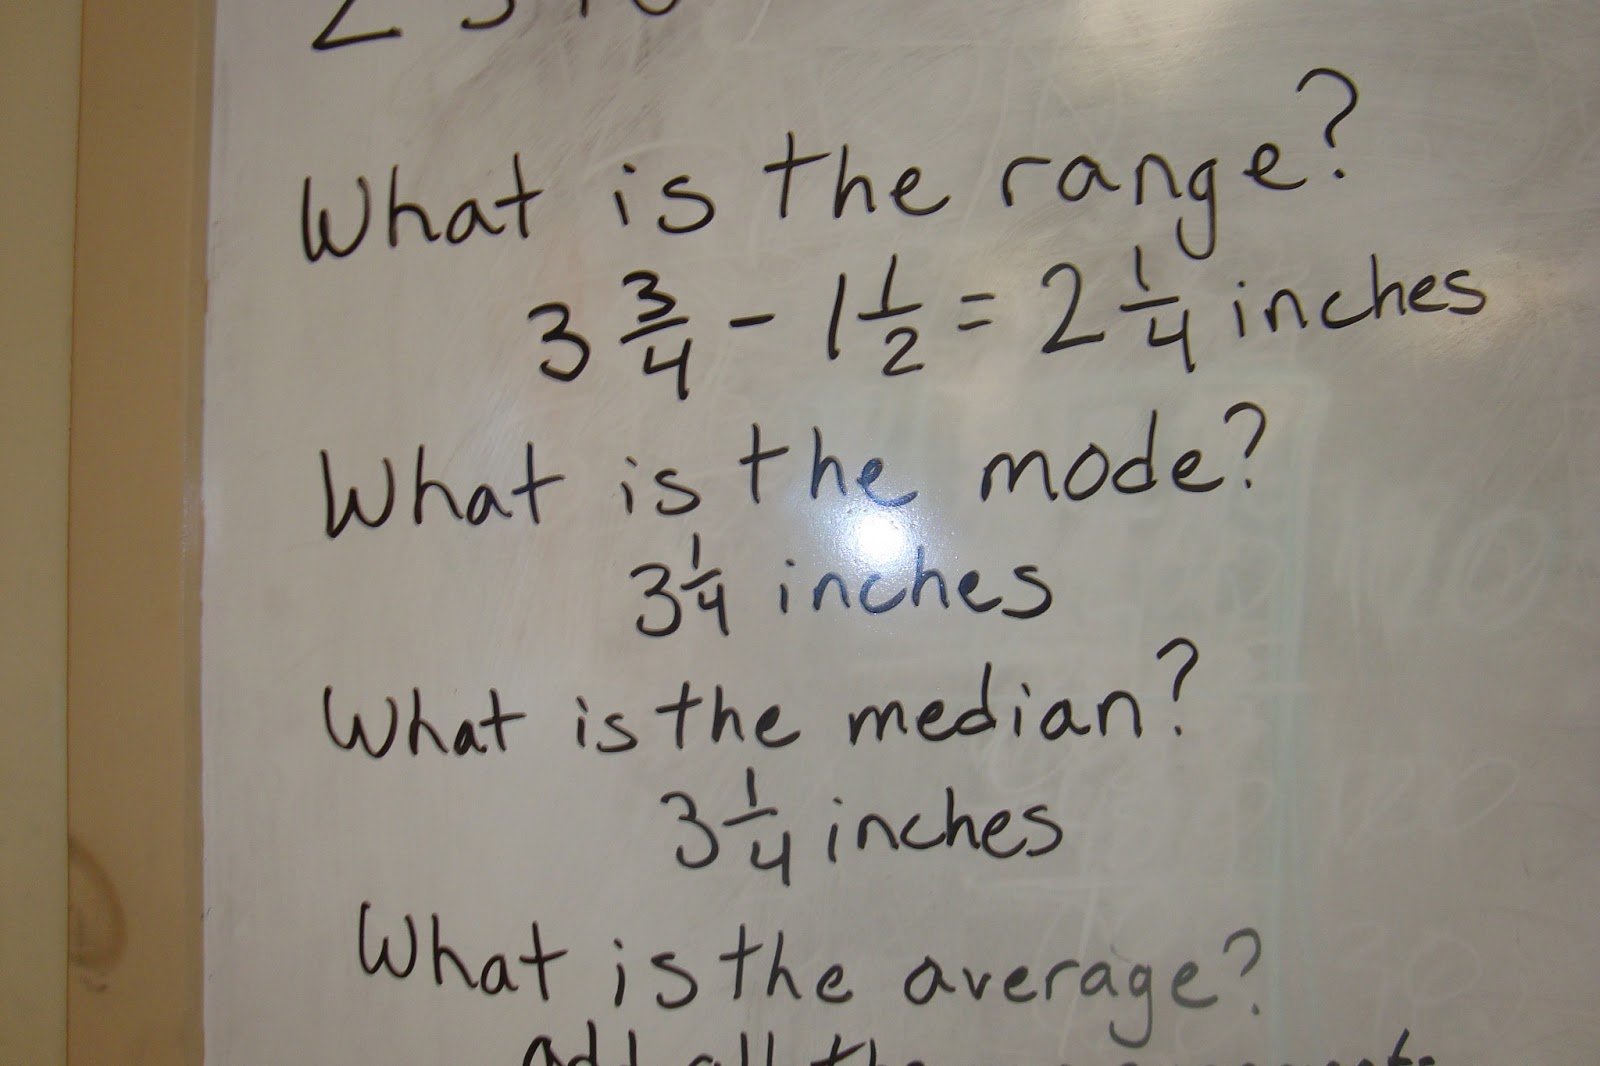 What is the range?
3 3/4 - 1 1/2 = 2 1/4 inches
What is the mode?
3 1/4 inches
What is the median?
3 1/4 inches
What is the average?
add all the